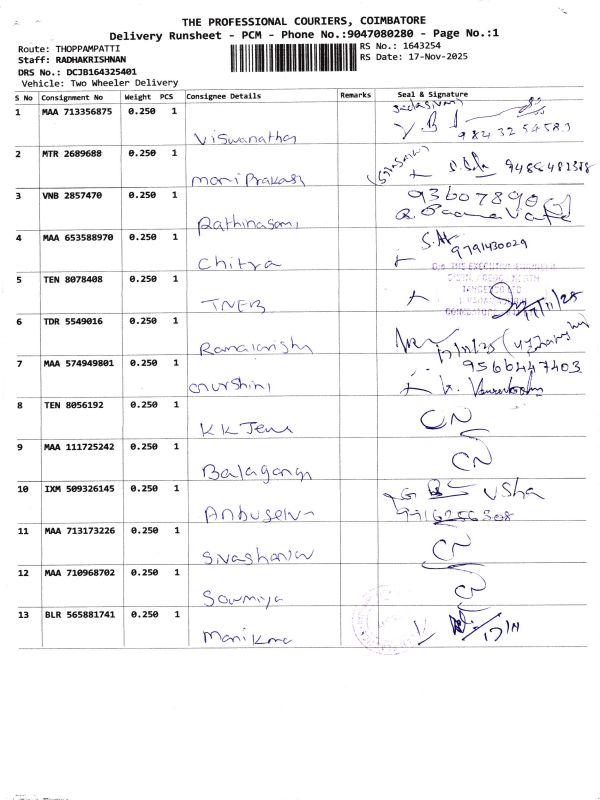 THE PROFESSIONAL COURIERS, COIMBATORE
Delivery Runsheet - PCM - Phone No.:9047080280 - Page No.:1
Route: THOPPAMPATTI
RS No.: 1643254
Staff: RADHAKRISHNAN
RS Date: 17-Nov-2025
DRS No.: DCJB164325401
Vehicle: Two Wheeler Delivery
S No Consignment No Weight PCS Consignee Details Remarks Seal & Signature
1 MAA 713356875 0.250 1
Viswanathan
9843254583
2 MTR 2689688 0.250 1
Mani Prakash
3 VNB 2857470 0.250 1
Rathinasami
4 MAA 653588970 0.250 1
Chitra
9791430029
5 TEN 8078408 0.250 1
TNEB
17/11/25
6 TDR 5549016 0.250 1
Ramakrishn
17/11/25
7 MAA 574949801 0.250 1
9566447403
8 TEN 8056192 0.250 1
KK Jew
CN
9 MAA 111725242 0.250 1
Balagang
CN
10 IXM 509326145 0.250 1
Anbuselvn
Usha
11 MAA 713173226 0.250 1
Sivashankar
CN
12 MAA 710968702 0.250 1
Sowmiya
CN
13 BLR 565881741 0.250 1
Manikma
17/11